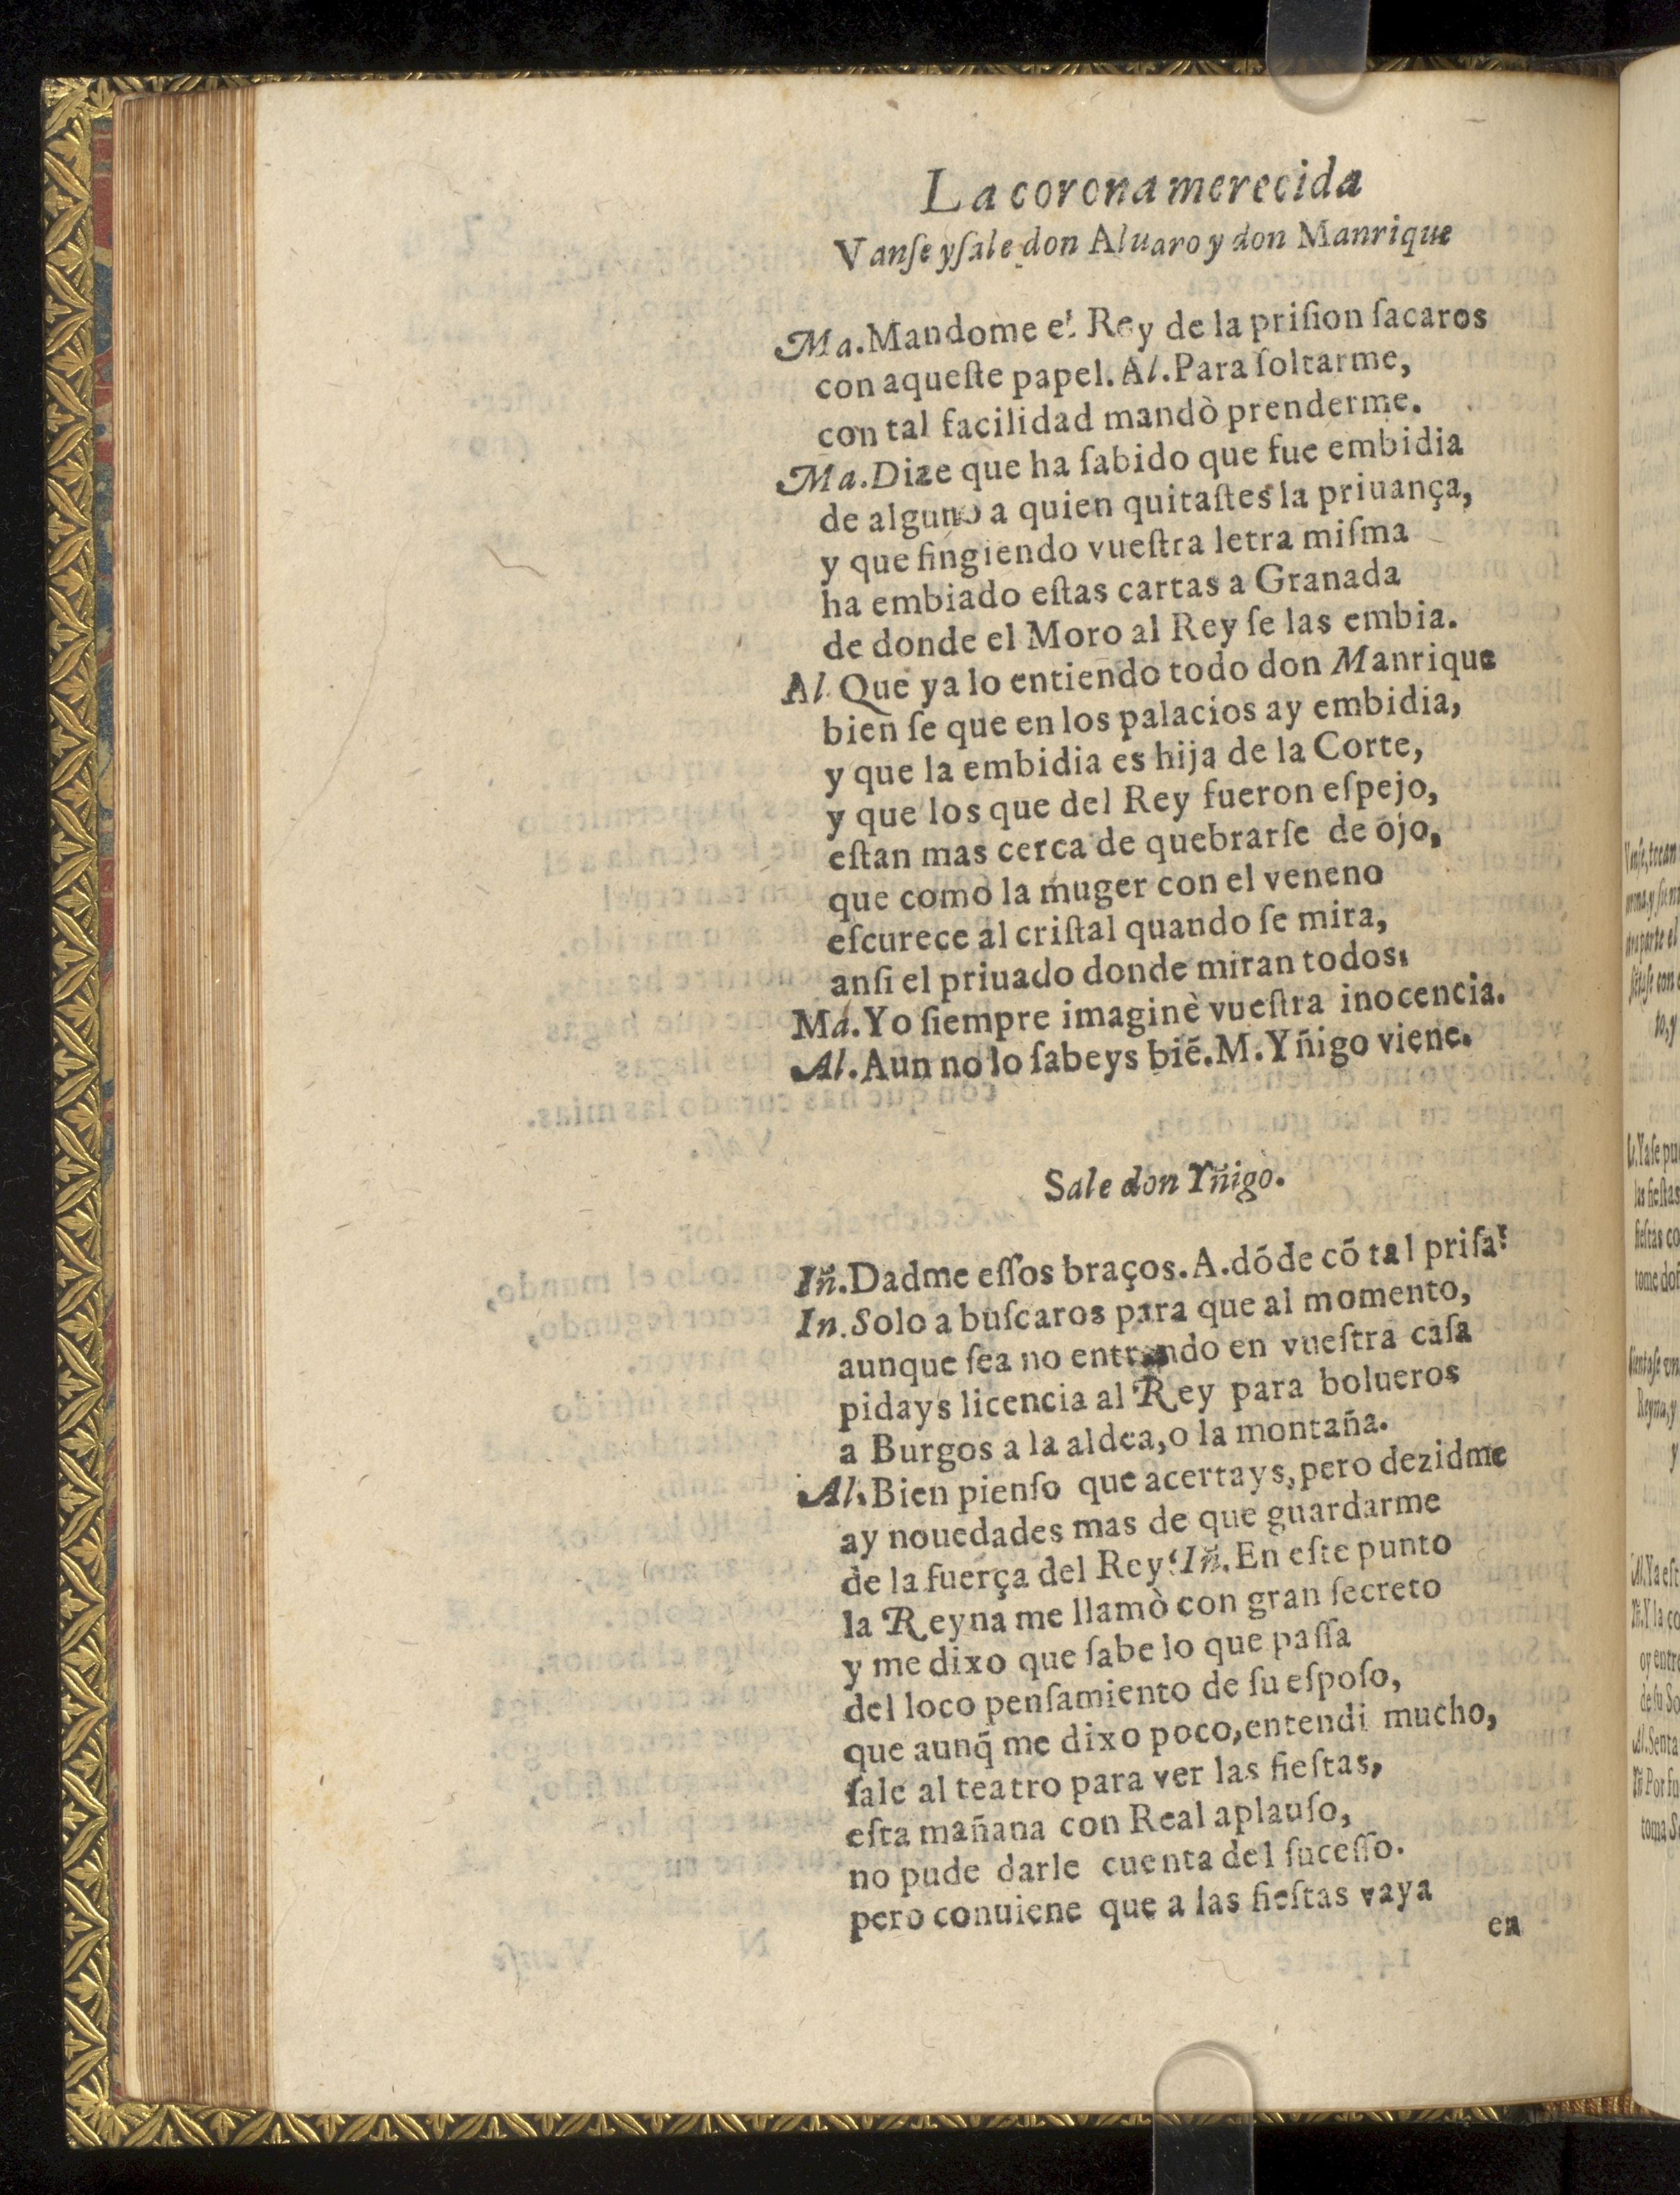 La corona merecida
Vanſe y ſale don Aluaro y don Manrique
Ma. Mandome el Rey de la priſion ſacaros
con aqueſte papel. Al. Para ſoltarme,
con tal facilidad mandò prenderme.
Ma. Dize que ha ſabido que fue embidia
de alguno a quien quitaſtes la priuança,
y que fingiendo vueſtra letra miſma
ha embiado eſtas cartas a Granada
de donde el Moro al Rey ſe las embia.
Al. Que ya lo entiendo todo don Manrique
bien ſe que en los palacios ay embidia,
y que la embidia es hija de la Corte,
y que los que del Rey fueron eſpejo,
eſtan mas cerca de quebrarſe de ojo,
que como la muger con el veneno
eſcurece al criſtal quando ſe mira,
anſi el priuado donde miran todos,
Ma. Yo ſiempre imaginè vueſtra inocencia.
Al. Aun no lo ſabeys biẽ. M. Yñigo viene.
Sale don Yñigo.
Iñ. Dadme eſſos braços. A. dõde cõ tal priſa?
In. Solo a buſcaros para que al momento,
aunque ſea no entrando en vueſtra caſa
pidays licencia al Rey para bolueros
a Burgos a la aldea, o la montaña.
Al. Bien pienſo que acertays, pero dezidme
ay nouedades mas de que guardarme
de la fuerça del Rey? Iñ. En eſte punto
la Reyna me llamò con gran ſecreto
y me dixo que ſabe lo que paſſa
del loco penſamiento de ſu eſpoſo,
que aunq̃ me dixo poco, entendi mucho,
ſale al teatro para ver las fieſtas,
eſta mañana con Real aplauſo,
no pude darle cuenta del ſuceſſo.
pero conuiene que a las fieſtas vaya
en